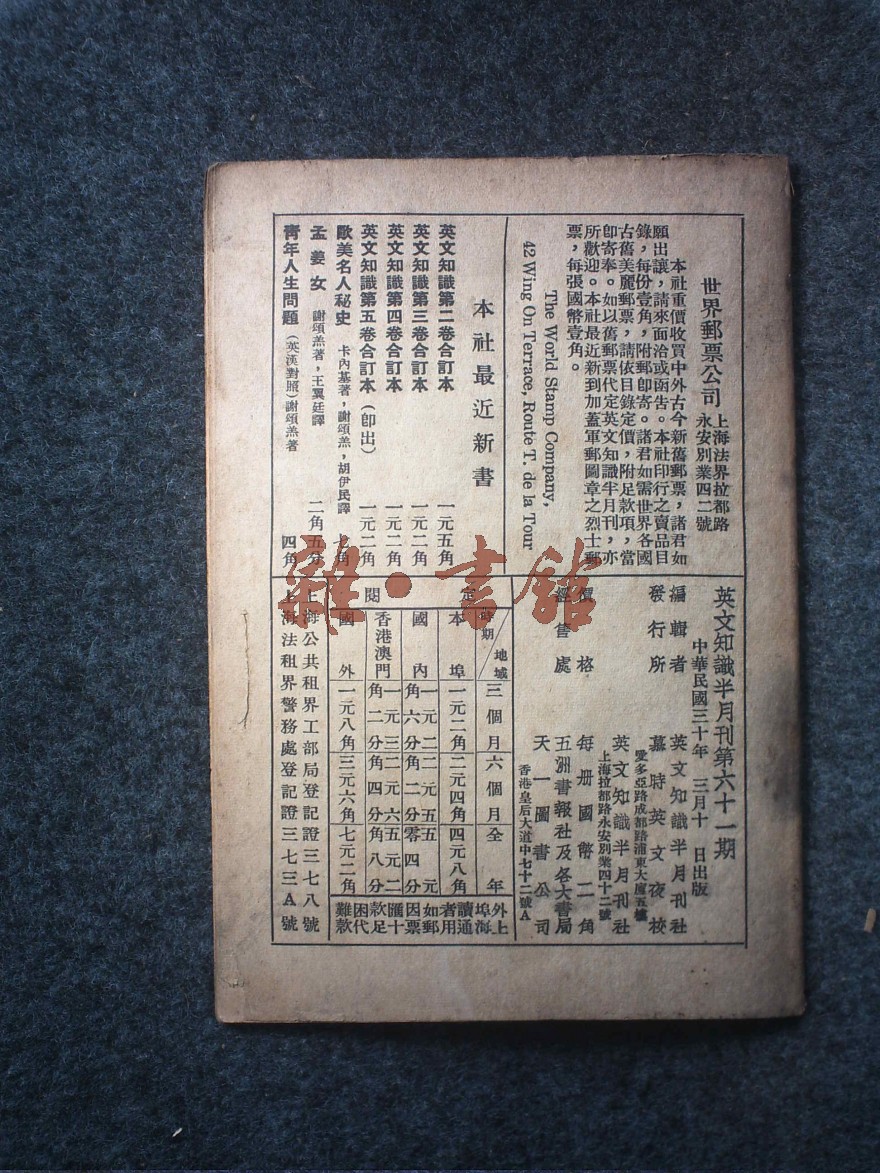 世界郵票公司
上海法界拉都路
永安別業四二號
本社重價收買中外古今新舊郵票，諸君如
願出讓，請來面洽或函告。本社印行之賣品目
錄，每份壹角，附郵卽寄。諸君如需世界各國
古舊美麗郵票，請依目錄定價，附足款項，當
卽寄奉。如以舊郵票代定英文知識半月刊，亦
所歡迎。本社最近新到加蓋軍郵圖章之烈士郵
票，每張國幣壹角。
The World Stamp Company,
42 Wing On Terrace, Route T. de la Tour
本社最近新書
英文知識第二卷合訂本 一元五角
英文知識第三卷合訂本 一元二角
英文知識第四卷合訂本 一元二角
英文知識第五卷合訂本（卽出） 一元二角
歐美名人秘史 卡內基著，謝頌羔，胡伊民譯 七角
孟姜女 謝頌羔著，王翼廷譯 二角五分
靑年人生問題（英漢對照）謝頌羔著 四角
英文知識半月刊第六十一期
中華民國三十年 三月十 日出版
編輯者 英文知識半月刊社
發行所 慕時英文夜校
愛多亞路成都路浦東大廈五樓
英文知識半月刊社
上海拉都路永安別業四十二號
價格 每册國幣二角
經售處 五洲書報社及各大書局
天一圖書公司
香港皇后大道中七十二號A
定閱
時期 地域 三個月 六個月 全年
本埠 一元二角 二元四角 四元八角
國內 一元二角六分 二元五角二分 五元零四分
香港澳門 一元三角二分 二元六角四分 五元二角八分
國外 一元八角 三元六角 七元二角
外埠讀者如因匯款困難
上海通用郵票十足代款
上海公共租界工部局登記證三七八號
上海法租界警務處登記證三七三A號
雜·書館